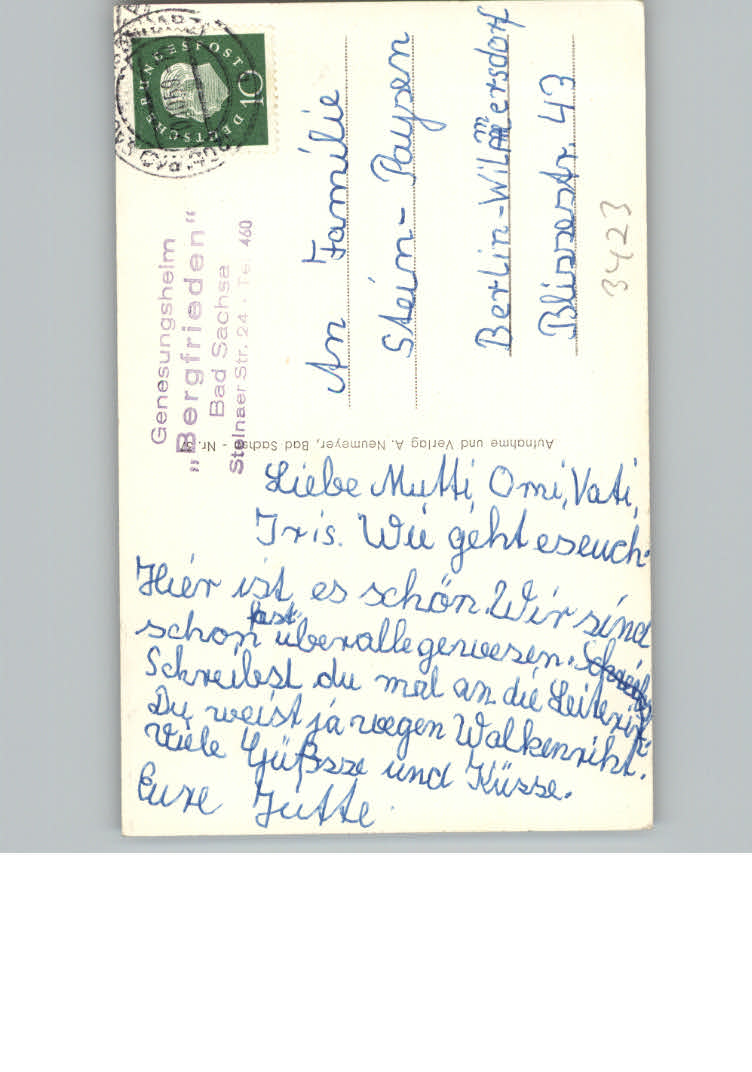 DEUTSCHE BUNDESPOST
10
Genesungsheim
„Bergfrieden“
Bad Sachsa
Steinaer Str. 24 · Te 460
An Familie
Stein-Paysen
Berlin-Wilmersdorf
Blissestr. 43
3423
Aufnahme und Verlag A. Neumeyer, Bad Sachsa - Nr. 37
Liebe Mutti, Omi, Vati,
Iris. Wie geht es euch.
Hier ist es schön. Wir sind
schon fast überalle gewesen.
Schreibst du mal an die Leiterin.
Du weist ja wegen Walkenriht.
Viele Güßsse und Küsse.
Eure Jutte.